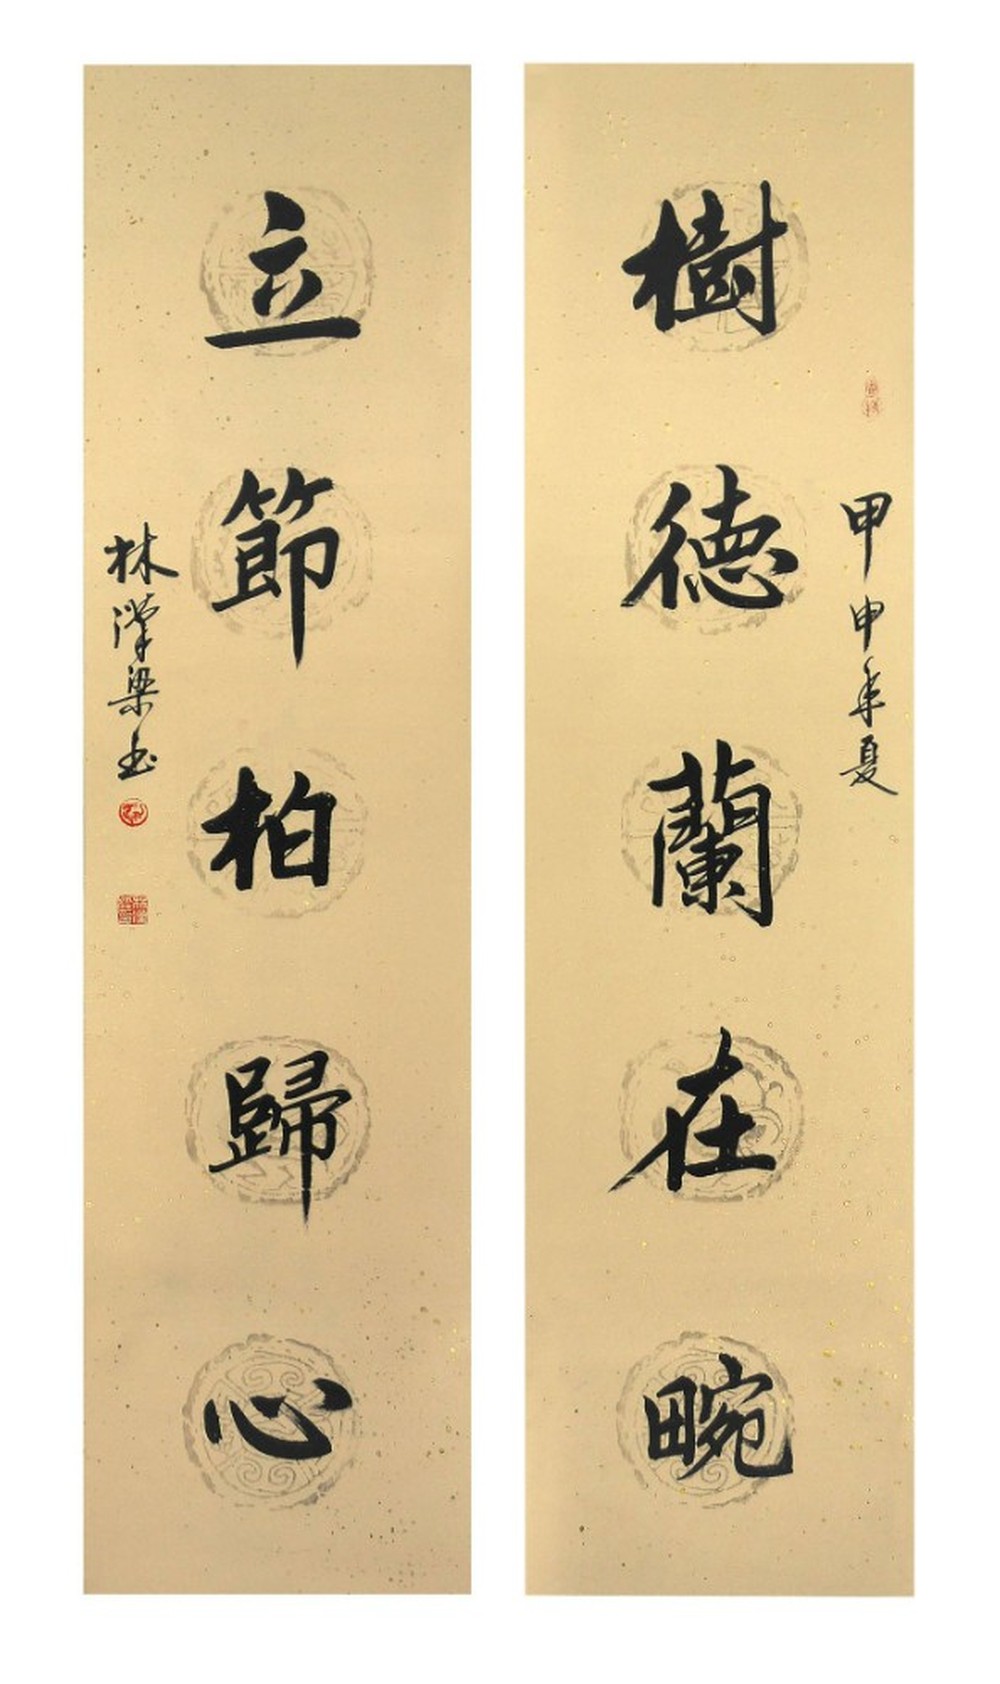 樹德蘭在畹
甲申年夏
立節柏歸心
林漢梁書